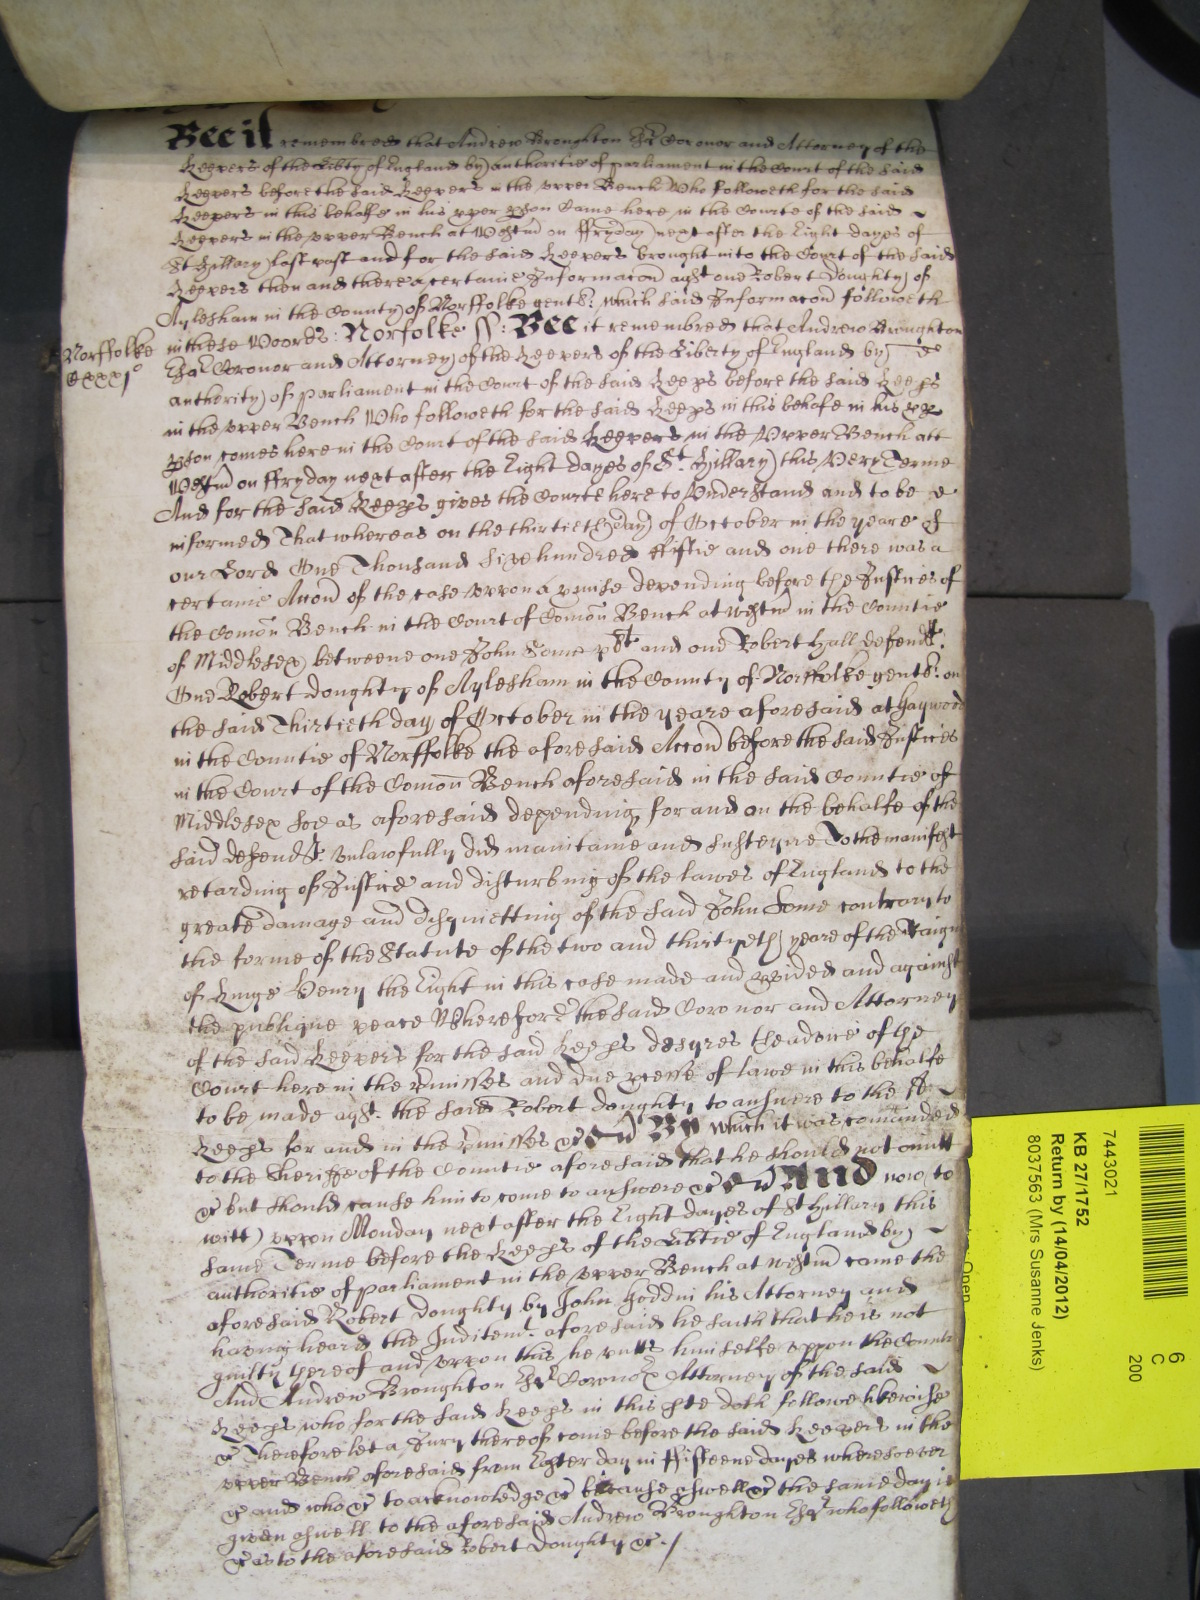 Bee it remembred that Andrew Broughton Esqr Coronor and Attorney of the
Keepers of the Libty of England by authoritie of parliament in the Court of the said
Keepers before the said Keepers in the upper Bench Who followeth for the said
Keepers in this behalfe in his pper pson Came here in the Courte of the said
Keepers in the upper Bench at Westm on ffryday next after the Eight dayes of
St Hillary last past and for the said Keepers brought into the Court of the said
Keepers then and there a certaine Informacon agst one Robert Doughty of
Aylesham in the County of Norffolke gent: which said Informacon followeth
in these Woords: Norfolke ss: Bee it remembred that Andrew Broughton
Norffolke
Esqr Coronor and Attorney of the Keepers of the Liberty of England by
authority of parliament in the Court of the said Keeps before the said Keeps
in the upper Bench Who followeth for the said Keeps in this behalfe in his pp
pson comes here in the Court of the said Keepers in the Upper Bench att
Westm on ffryday next after the Eight dayes of St. Hillary this Very Terme
And for the said Keeps gives the Courte here to Understand and to be
informed That whereas on the thirtieth day of October in the yeare of
our Lord One Thousand sixe hundred ffiftie and one there was a
certaine Accon of the case uppon a pmise depending before the Justices of
the Comon Bench in the Court of Comon Bench at Westm in the Countie
of Middlesex betweene one John Some plt and one Robert Hall defendt:
One Robert Doughty of Aylesham in the County of Norffolke gent: on
the said Thirtieth day of October in the yeare aforesaid at Haywood
in the Countie of Norffolke the aforesaid Accon before the said Justices
in the Court of the Comon Bench aforesaid in the said Countie of
Middlesex soe as aforesaid depending for and on the behalfe of the
said defendt. unlawfully did maintaine and susteyne To the manifest
retarding of Justice and disturbing of the lawes of England to the
greate damage and disquietting of the said John Some contrary to
the forme of the Statute of the two and thirtyeth yeare of the Raigne
of Kinge Henry the Eight in this case made and pvided and against
the publique peace Wherefore the said Coronor and Attorney
of the said Keepers for the said Keeps desyres the advice of the
Court here in the pmisses and due pcesse of lawe in this behalfe
to be made agst. the said Robert Doughty to answere to the sd.
Keeps for and in the pmisses &c By which it was comanded
to the Sheriffe of the Countie aforesaid that he should not omitt
&c but should cause him to come to answere &c And now to
witt) uppon Monday next after the Eight dayes of St Hillary this
same Terme before the Keeps of the Libtie of England by
authoritie of parliament in the Upper Bench at Westm came the
aforesaid Robert Doughty by John Goddin his Attorney and
having heard the Inditemt. aforesaid he saith that he is not
guilty thereof and uppon this he putts himselfe uppon the Countr
And Andrew Broughton Esqr Coronor Attorney of the said
Keeps who for the said Keeps in this pte doth followe likewise
&c Therefore let a Jury thereof come before the said Keepers in the
upper Bench aforesaid from Easter day in ffifteene dayes wheresoever
&c and who &c to acknowledge &c because aswell &c the same day is
given aswell to the aforesaid Andrew Broughton Esqr who followeth
&c as to the aforesaid Robert Doughty &c./
7443021
KB 27/1752
Return by (14/04/2012)
8037563 (Mrs Susanne Jenks)
6
C
200
Open